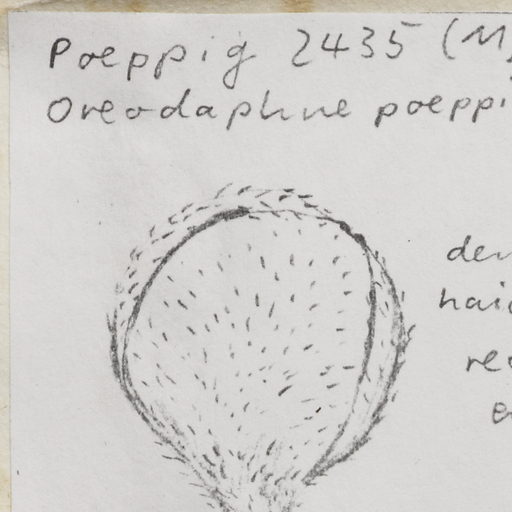 Poeppig 2435 (M)
Oreodaphne poeppi
den
hai
re
e